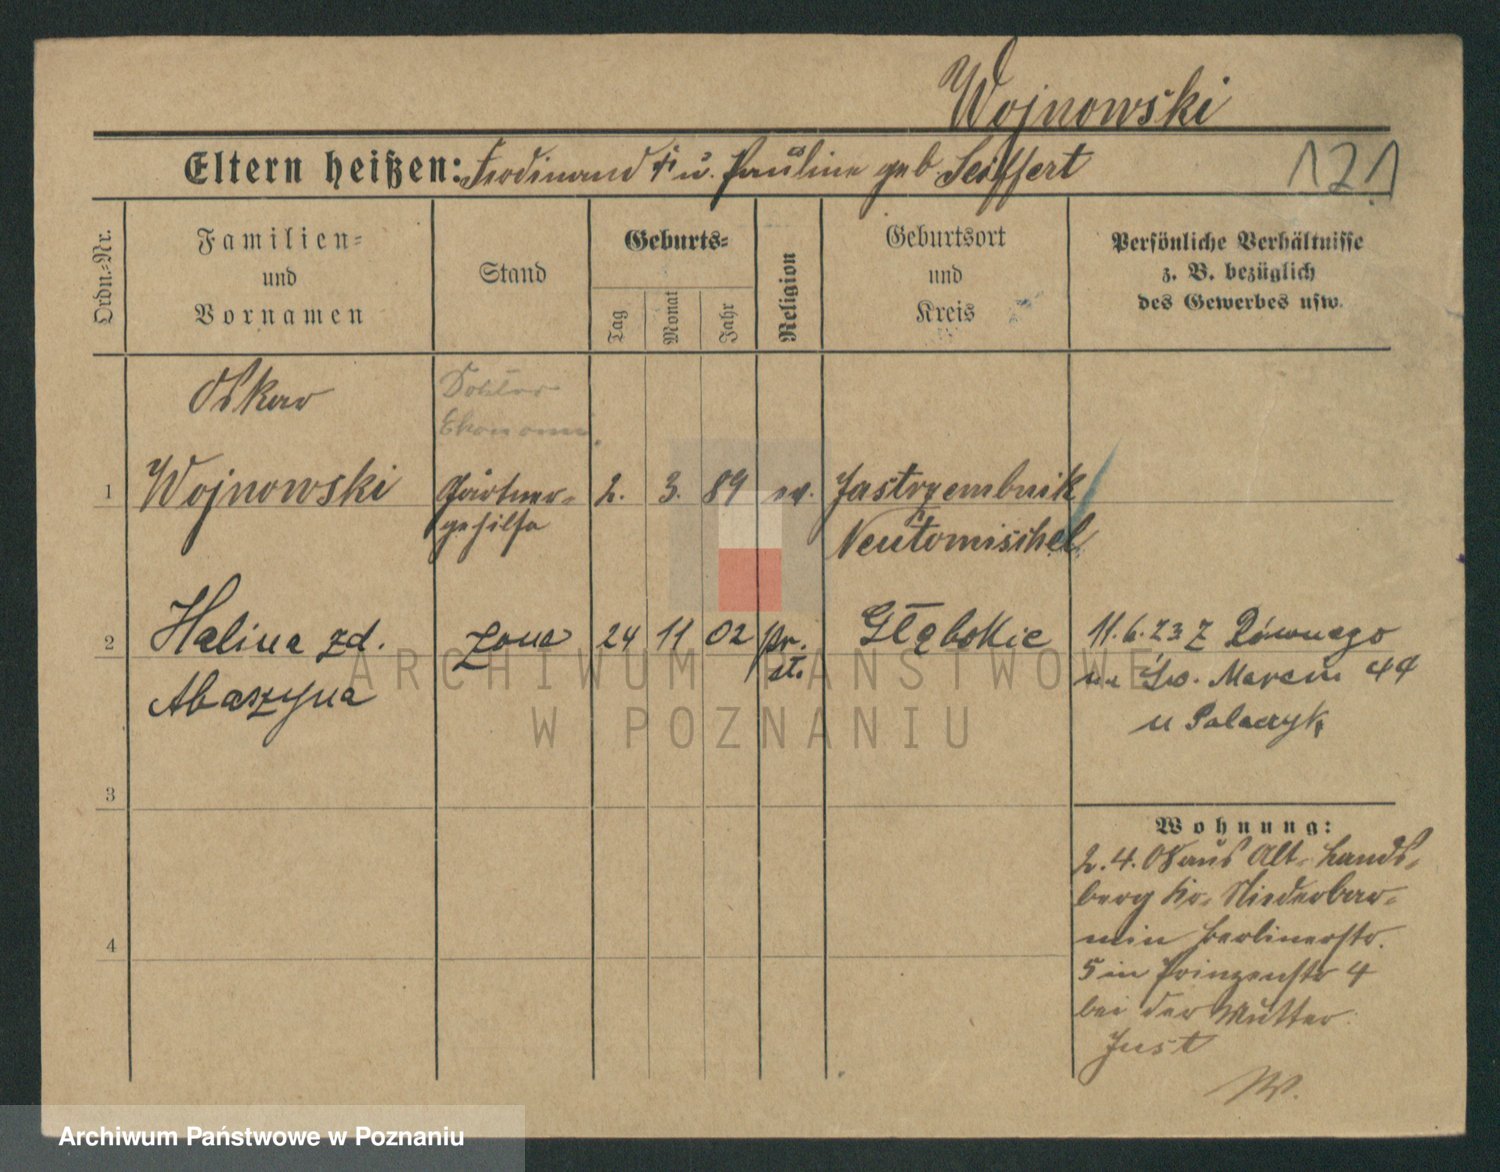 Wojnowski
Eltern heißen: Ferdinand † u. Pauline geb. Seiffert
121
Ordn.-Nr.
Familien-
und
Vornamen
Stand
Geburts-
Tag
Monat
Jahr
Religion
Geburtsort
und
Kreis
Persönliche Verhältnisse
z. B. bezüglich
des Gewerbes usw.
Oskar
Doktor
Ekonom.
1 Wojnowski Gärtner- 2. 3. 89 ev. Jastrzembnik
gehilfe Neutomischel
2 Halina zd. żona 24 11 02 pr. Głębokie 11.6.23 z Równego
Abaszyna st. Św. Marcin 44
u Palaczyk
3
Wohnung:
2. 4. 08 aus Alt-Lands-
berg Kr. Niederbar-
min Berlinerstr.
5 in Prinzenstr 4
bei der Mutter
Just
W.
4
ARCHIWUM PAŃSTWOWE
W POZNANIU
Archiwum Państwowe w Poznaniu